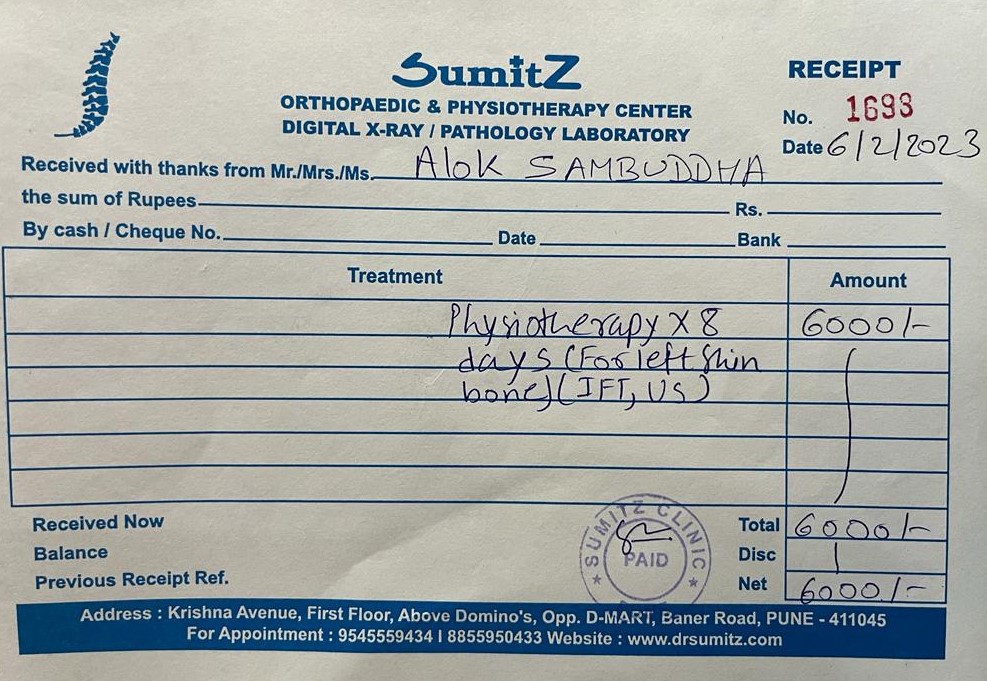 SumitZ
ORTHOPAEDIC & PHYSIOTHERAPY CENTER
DIGITAL X-RAY / PATHOLOGY LABORATORY
RECEIPT
No. 1693
Date 6/2/2023
Received with thanks from Mr./Mrs./Ms. Alok SAMBUDDHA
the sum of Rupees Rs.
By cash / Cheque No. Date Bank
Treatment Amount
Physiotherapy X 8 6000/-
days (For left Shin
bone) (IFT, US)
Received Now
Balance
Previous Receipt Ref.
SUMITZ CLINIC
PAID
Total 6000/-
Disc
Net 6000/-
Address : Krishna Avenue, First Floor, Above Domino's, Opp. D-MART, Baner Road, PUNE - 411045
For Appointment : 9545559434 I 8855950433 Website : www.drsumitz.com